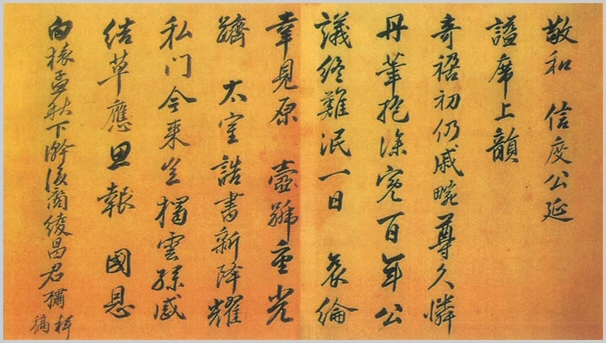 敬和 信度公延
諡席上韻
奇禍初仍戚畹尊久憐
丹筆抱深寃百年公
議終難泯一日 哀綸
幸見原 壼號重光
躋 太室誥書新降耀
私門今來豈獨雲孫感
結草應思報 國恩
白猿孟秋下澣後裔綾昌君橚拜稿